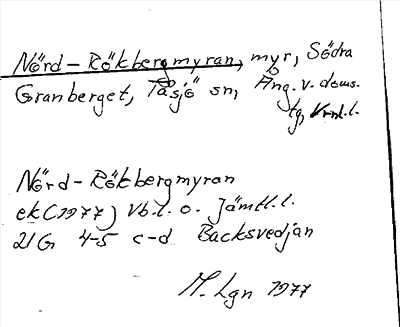 Nörd-Rökbergmyran, myr, Södra
Granberget, Tåsjö sn, Ång. v. doms.
tg, Vrnl.l.
Nörd-Rökbergmyran
ek(1977) Vb.l. o. Jämtl.l.
21G 4-5 c-d Backsvedjan
M. Lgn 1977